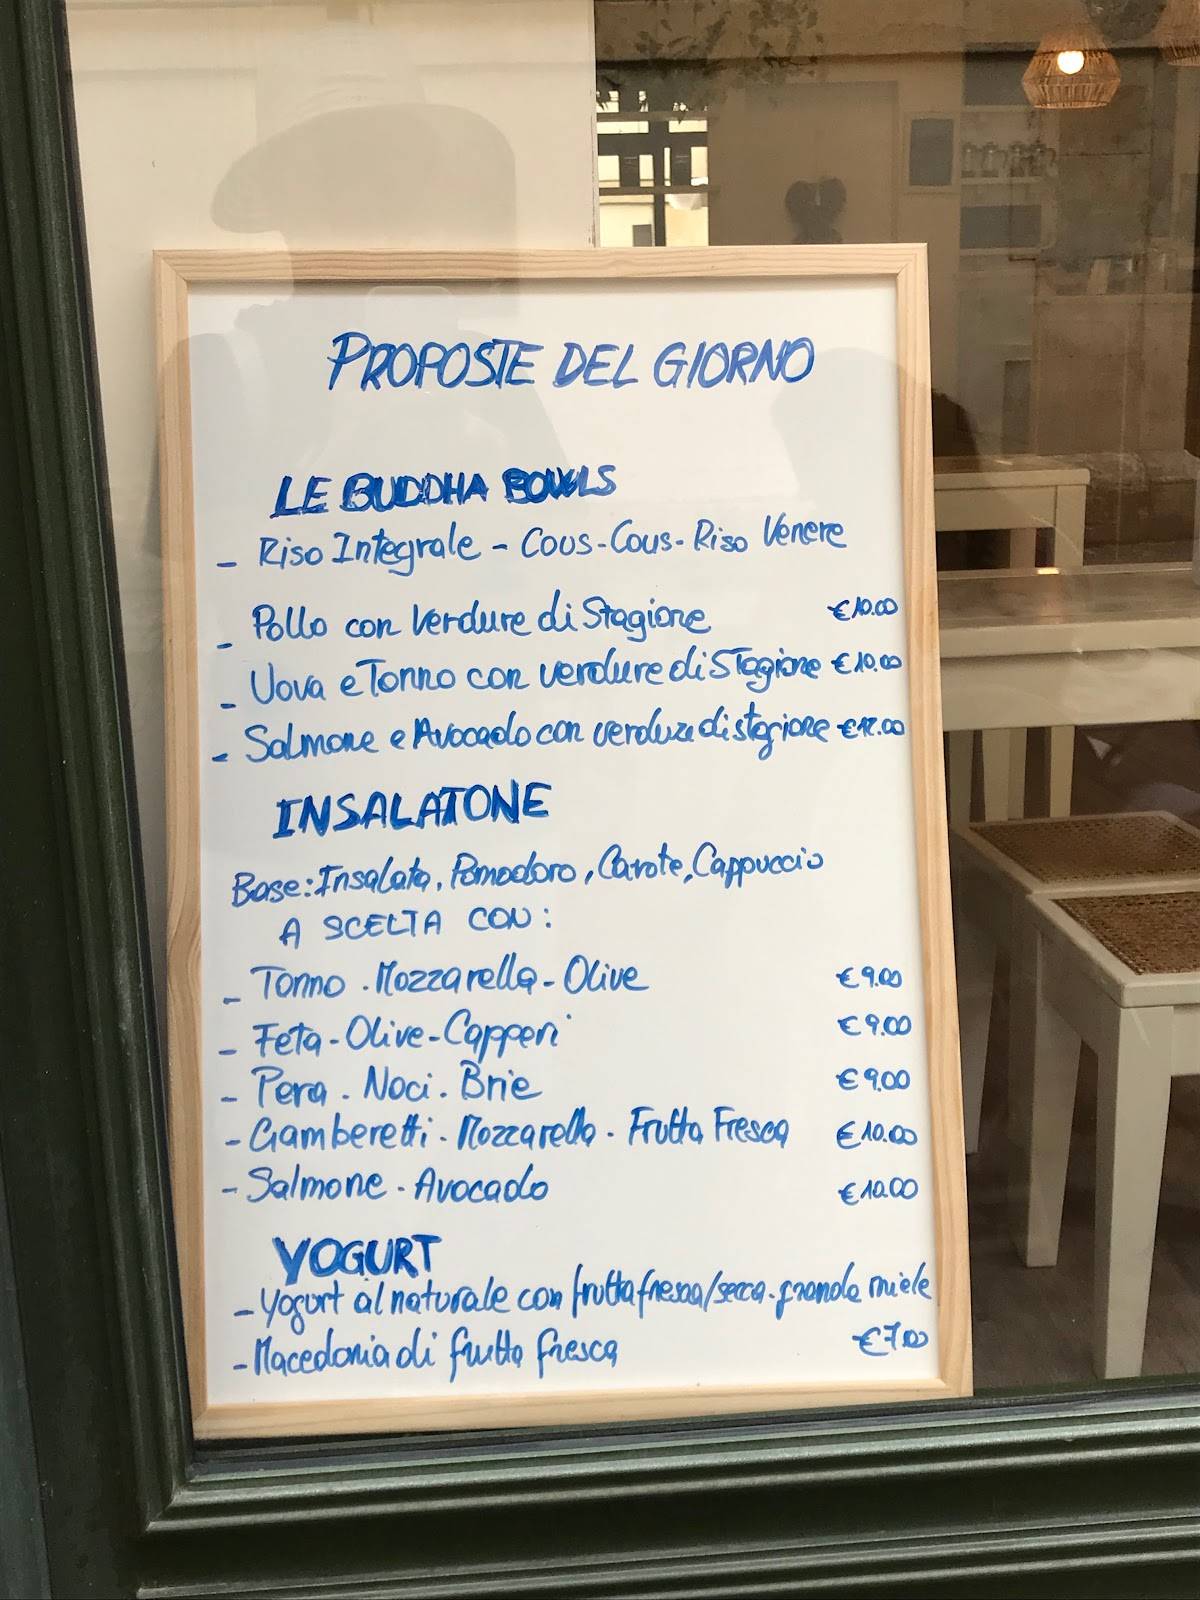 PROPOSTE DEL GIORNO
LE BUDDHA BOWLS
- Riso Integrale - Cous-Cous-Riso Venere
- Pollo con verdure di Stagione €10.00
- Uova e Tonno con verdure di Stagione €10.00
- Salmone e Avocado con verdure di stagione €12.00
INSALATONE
Base: Insalata, Pomodoro, Carote, Cappuccio
A SCELTA CON:
- Tonno . Mozzarella - Olive €9.00
- Feta - Olive - Capperi €9.00
- Pera . Noci . Brie €9.00
- Gamberetti . Mozzarella . Frutta Fresca €10.00
- Salmone . Avocado €10.00
YOGURT
- Yogurt al naturale con frutta fresca/secca . granola miele
- Macedonia di frutta fresca €7.00